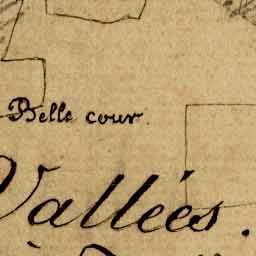 Belle cour.
Vallées.